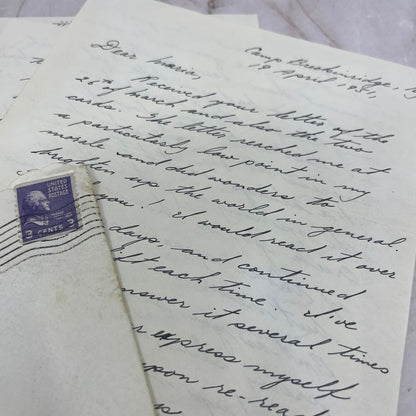 Camp Breckinridge, Ky
18 April 1951,
Dear Maria,
Received your letter of the
26th of March and also the two
cards. The letter reached me at
a particularly low point in my
morale and did wonders to
brighten up the world in general.
I would read it over
days, and continued
each time. I've
answer it several times
express myself
upon re-rea
UNITED STATES
POSTAGE
3 CENTS 3